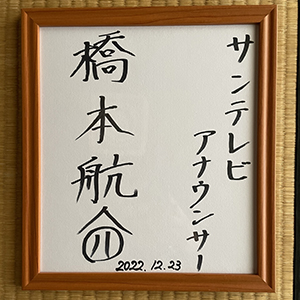 サンテレビ
アナウンサー
橋本航介
2022.12.23